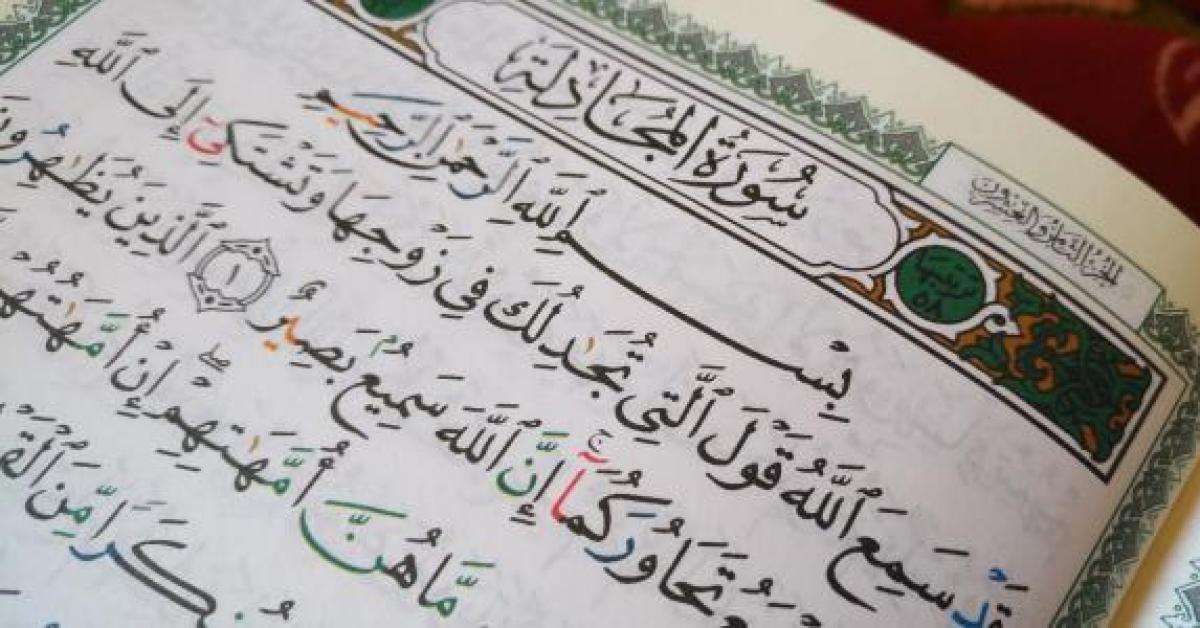 الجزء الثامن والعشرون
سُورَةُ المُجَادلَة
ترتيبها ٥٨
بِسْمِ ٱللَّهِ ٱلرَّحْمَٰنِ ٱلرَّحِيمِ
قَدْ سَمِعَ ٱللَّهُ قَوْلَ ٱلَّتِي تُجَٰدِلُكَ فِي زَوْجِهَا وَتَشْتَكِيٓ إِلَى ٱللَّهِ
تَحَاوُرَكُمَآۚ إِنَّ ٱللَّهَ سَمِيعُۢ بَصِيرٌ ١ ٱلَّذِينَ يُظَٰهِرُونَ
مَّا هُنَّ أُمَّهَٰتِهِمْۖ إِنْ أُمَّهَٰتُهُمْ
مِّنَ